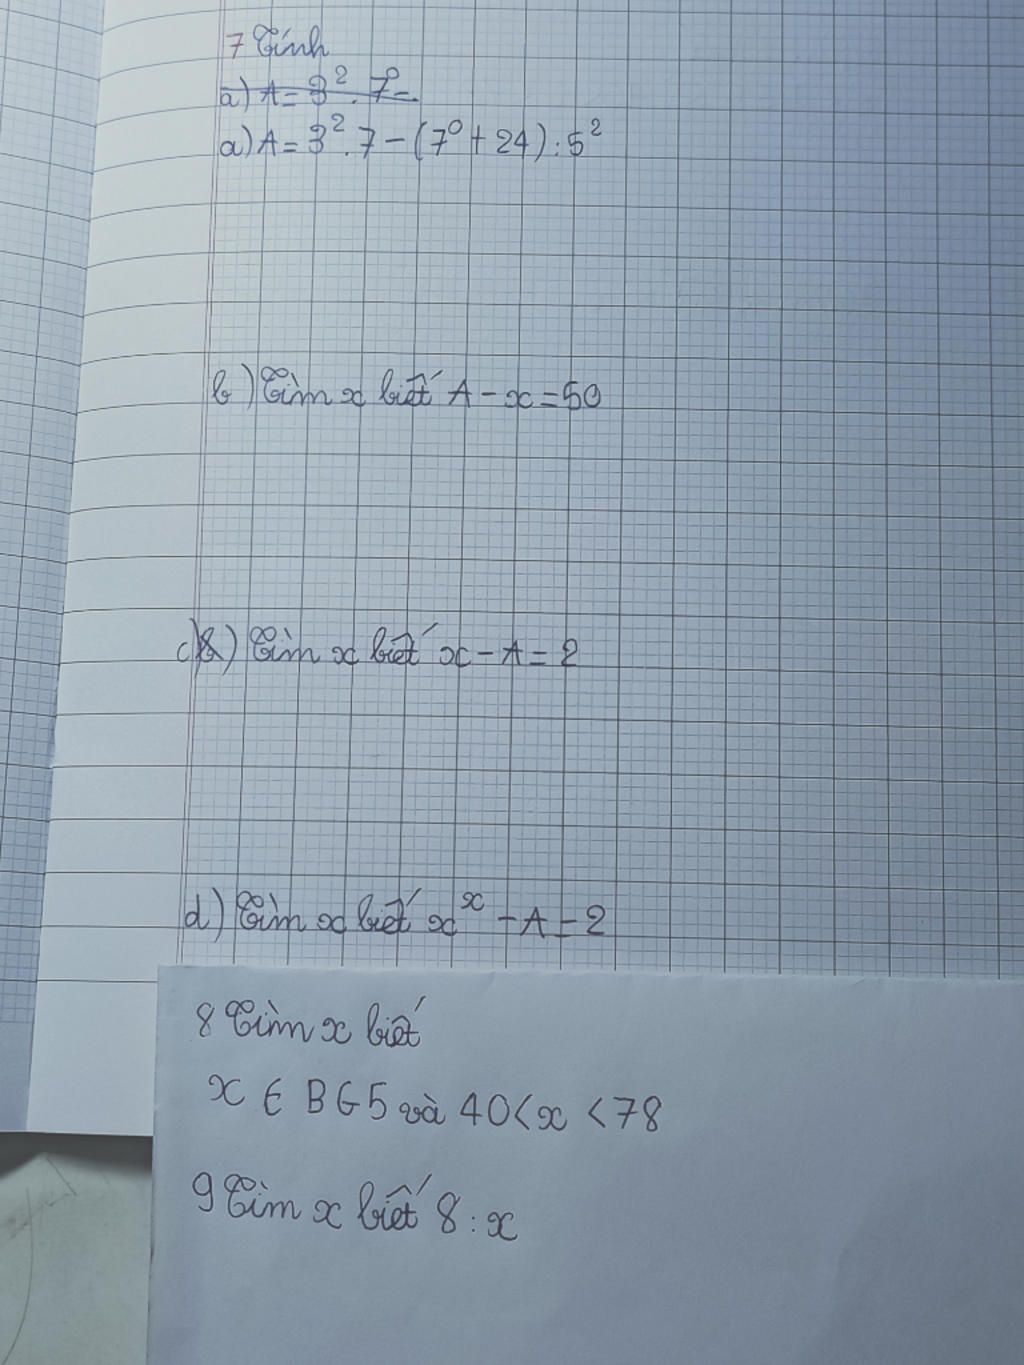 7 Tính
a) A = 3² . 7⁰ -
a) A = 3² . 7 - (7⁰ + 24) : 5²
b) Tìm x biết A - x = 50
c) Tìm x biết x - A = 2
d) Tìm x biết xˣ - A = 2
8 Tìm x biết
x ∈ B G 5 và 40 < x < 78
9 Tìm x biết 8 : x